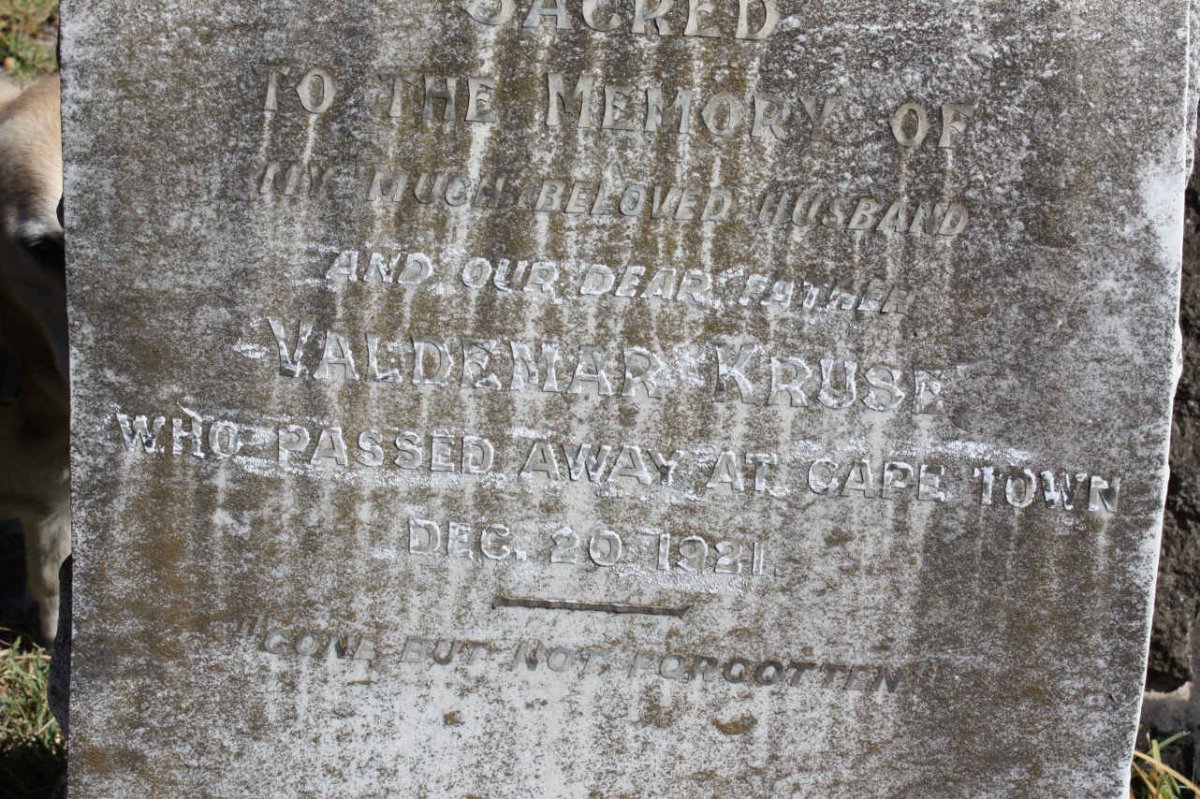 SACRED
TO THE MEMORY OF
MY MUCH BELOVED HUSBAND
AND OUR DEAR FATHER
VALDEMAR KRUSE
WHO PASSED AWAY AT CAPE TOWN
DEC. 20 1921
"GONE BUT NOT FORGOTTEN"